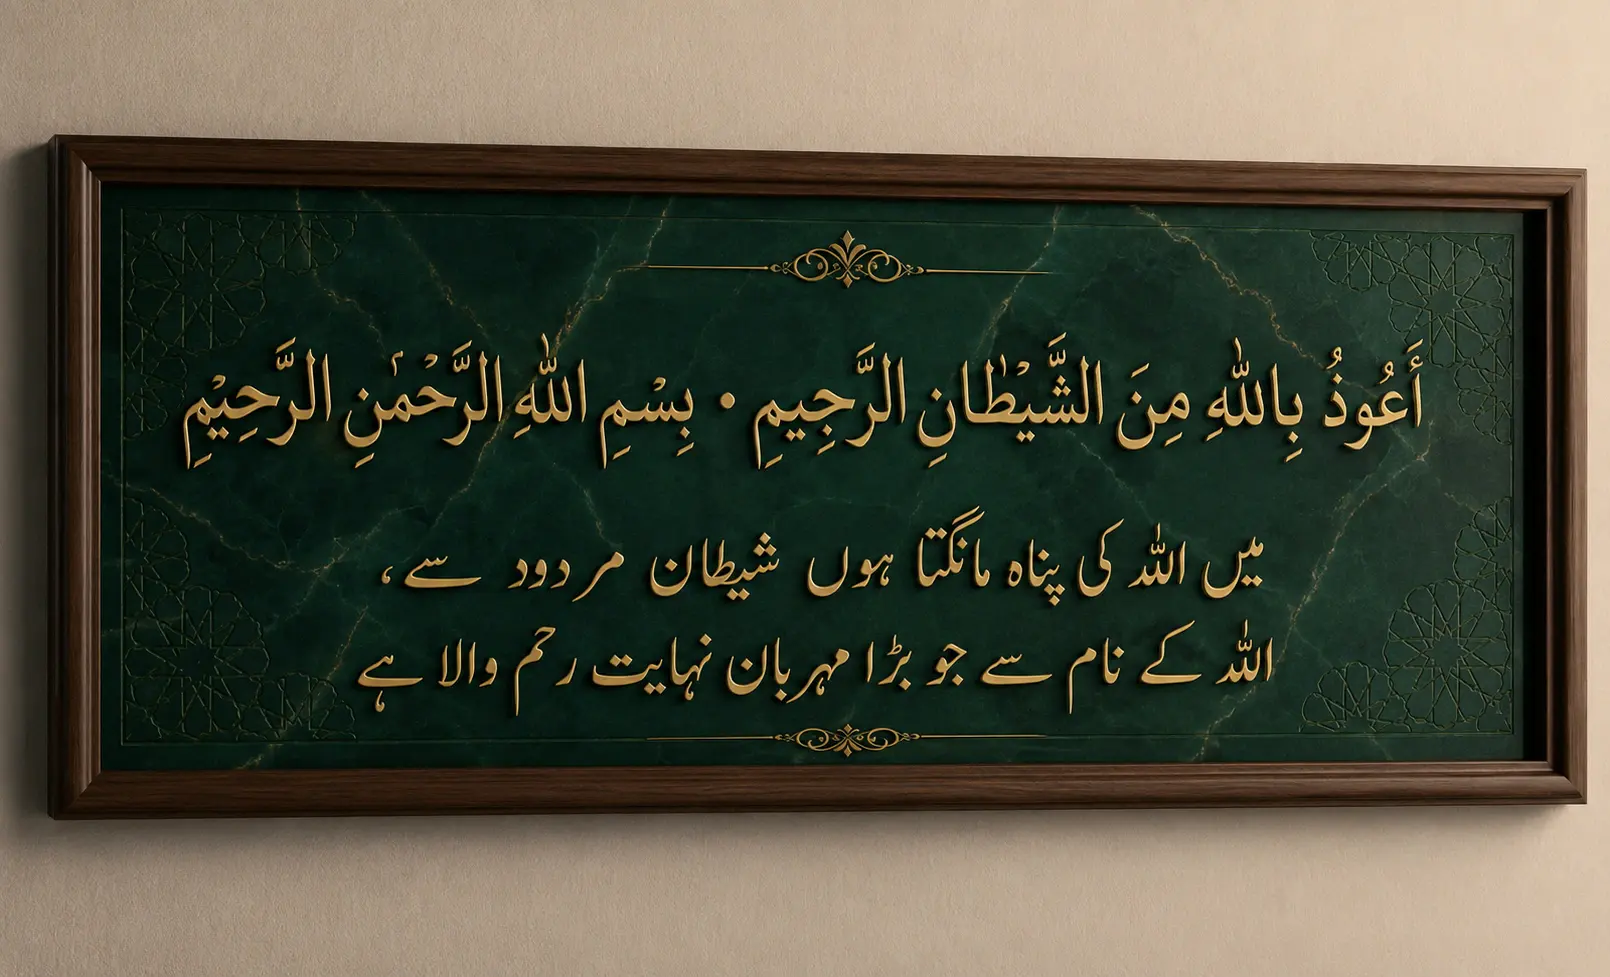 أَعُوذُ بِاللّٰهِ مِنَ الشَّيْطٰانِ الرَّجِيمِ • بِسْمِ اللّٰهِ الرَّحْمٰنِ الرَّحِيْمِ
میں اللہ کی پناہ مانگتا ہوں شیطان مردود سے،
اللہ کے نام سے جو بڑا مہربان نہایت رحم والا ہے